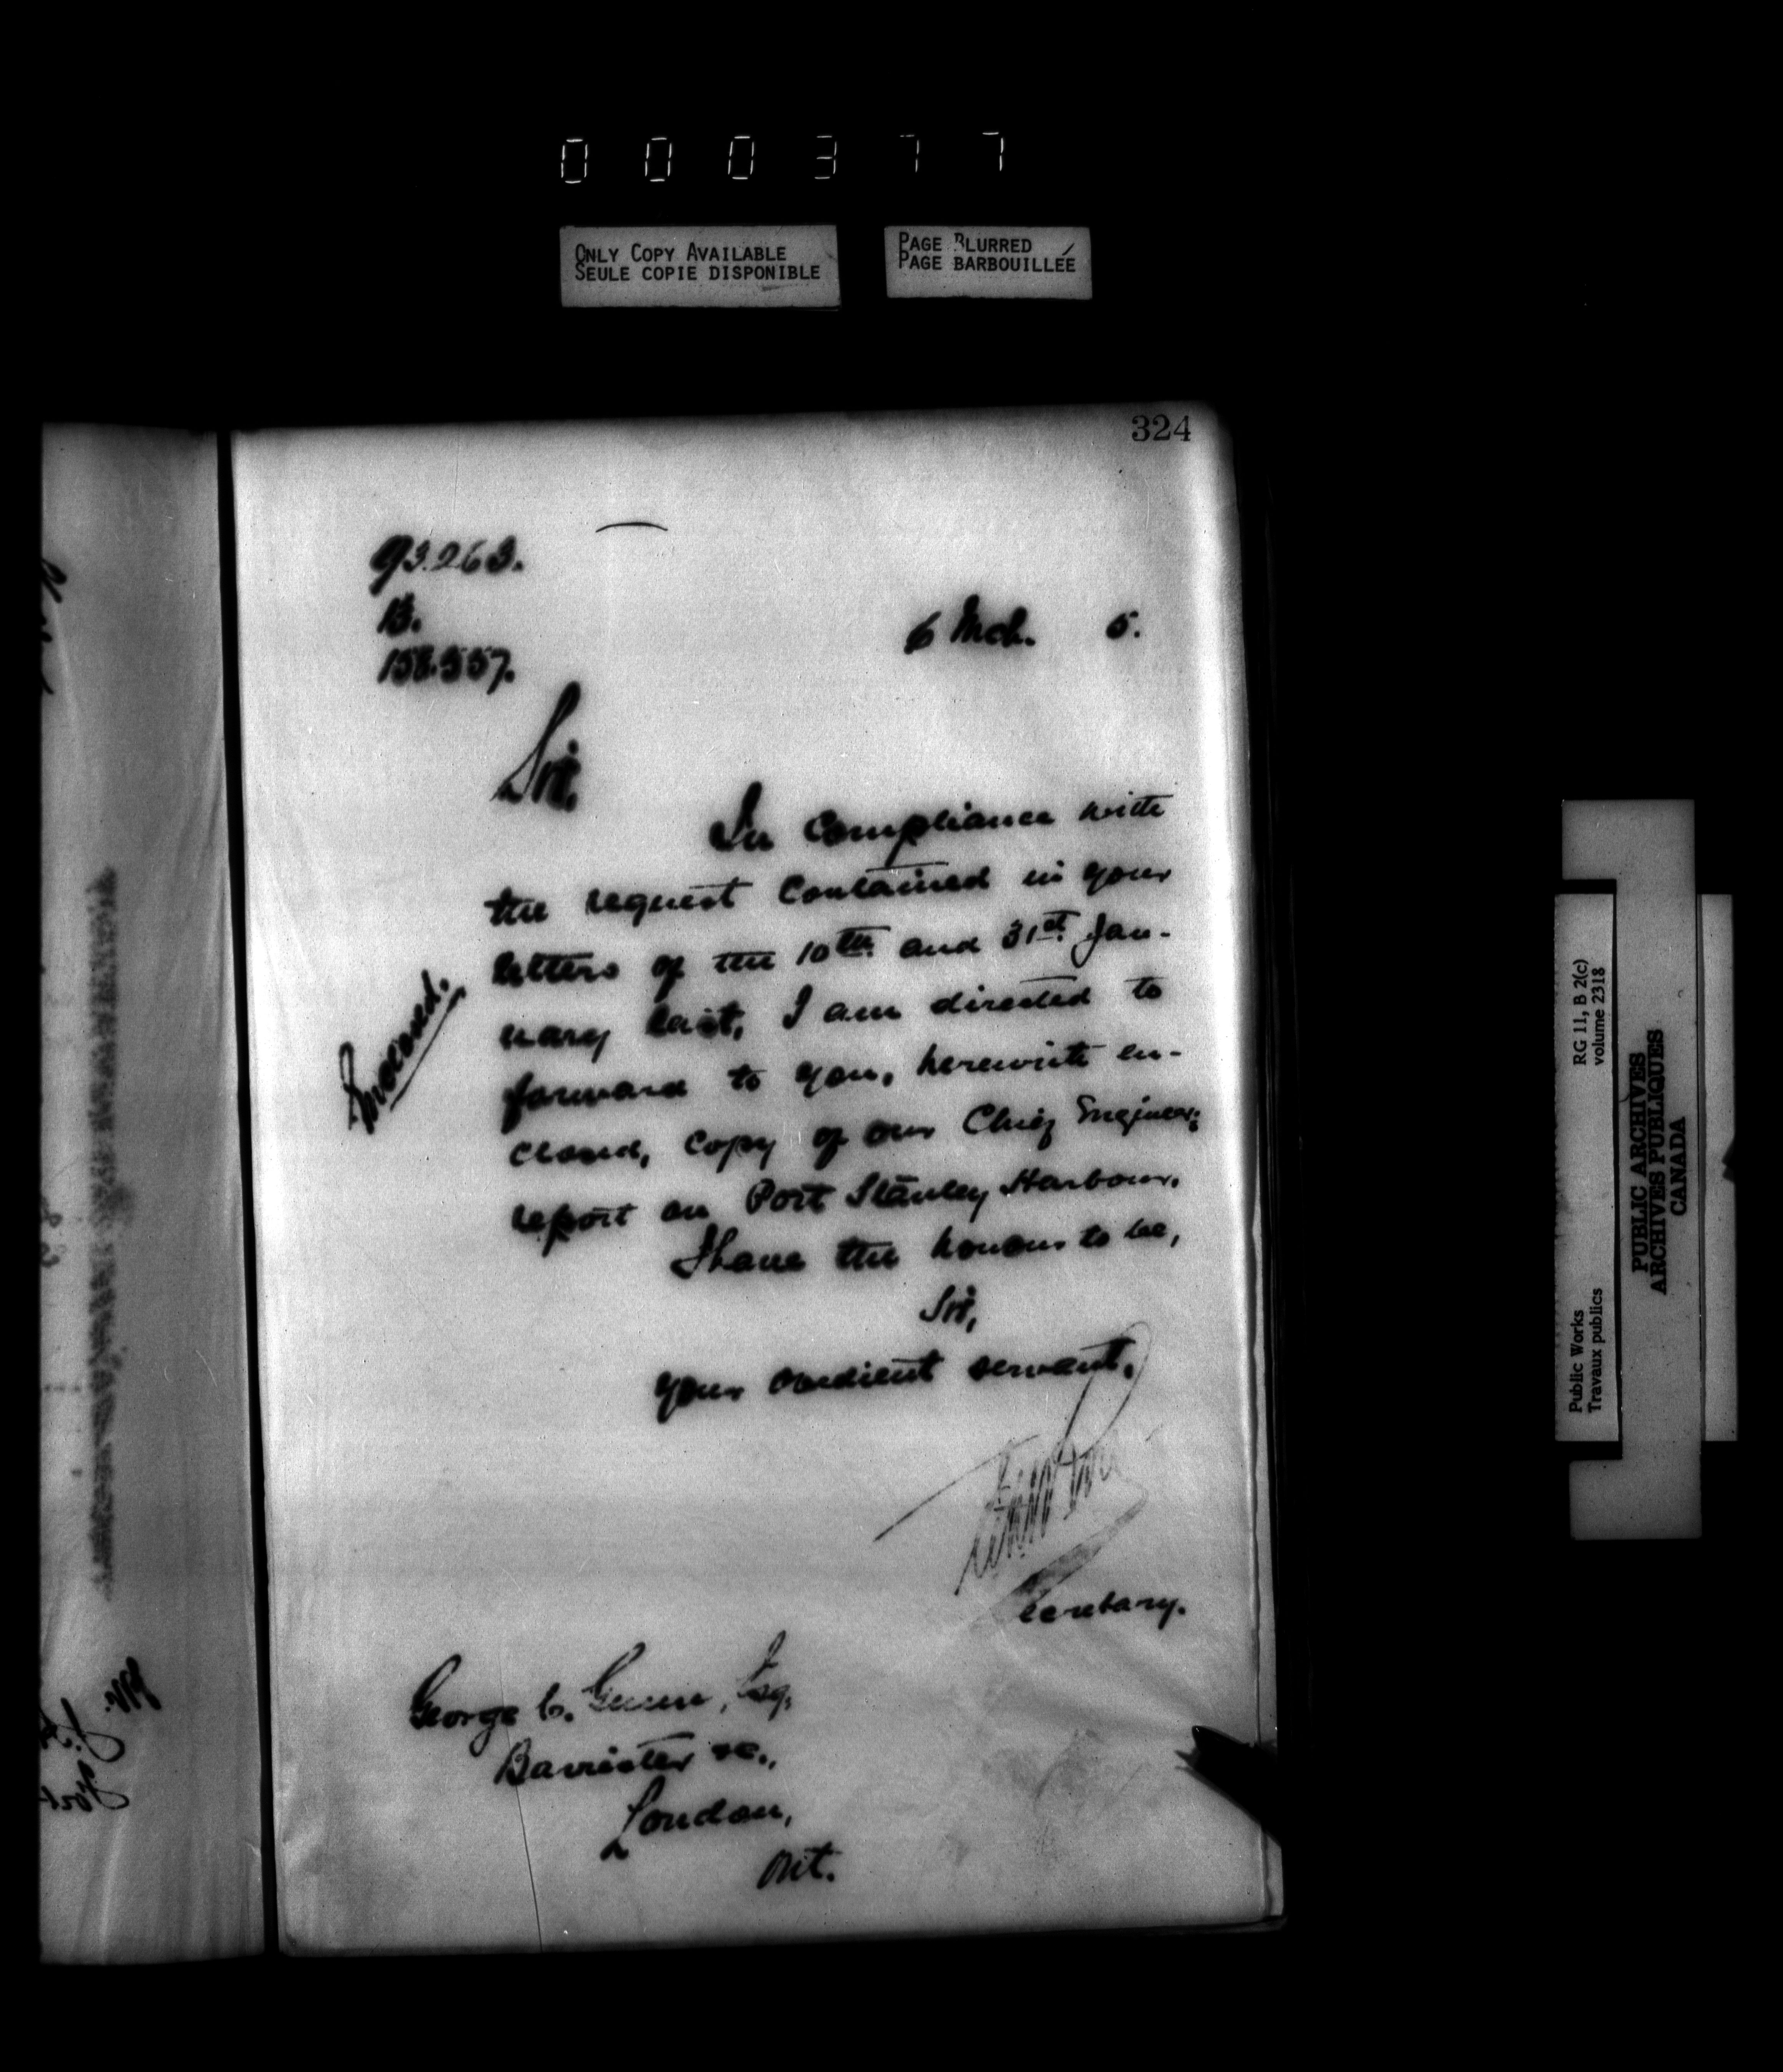 000377
ONLY COPY AVAILABLE
SEULE COPIE DISPONIBLE
PAGE BLURRED
PAGE BARBOUILLÉE
324
93.263.
B.
158.557.
6 Mch. 5.
Sir,
In compliance with
the request contained in your
letters of the 10th and 31st Jan-
uary last, I am directed to
forward to you, herewith en-
closed, copy of our Chief Engineer's
report on Port Stanley Harbour.
I have the honour to be,
Sir,
your obedient servant,
Secretary.
Enclosed.
George C. Gunn, Esq.
Barrister &c.,
London,
Ont.
RG 11, B 2(c)
volume 2318
Public Works
Travaux publics
PUBLIC ARCHIVES
ARCHIVES PUBLIQUES
CANADA